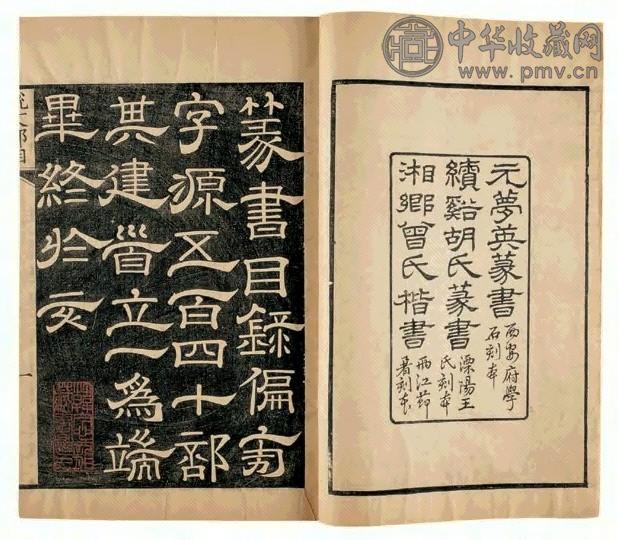 中华收藏网
www.pmv.cn
元夢英篆書
西安府學
石刻本
續谿胡氏篆書
溧陽王
氏刻本
湘鄉曾氏楷書
兩江節
署刻本
篆書目錄偏旁
字源五百四十部
其建首立一爲端
畢終於亥
說文部目
一